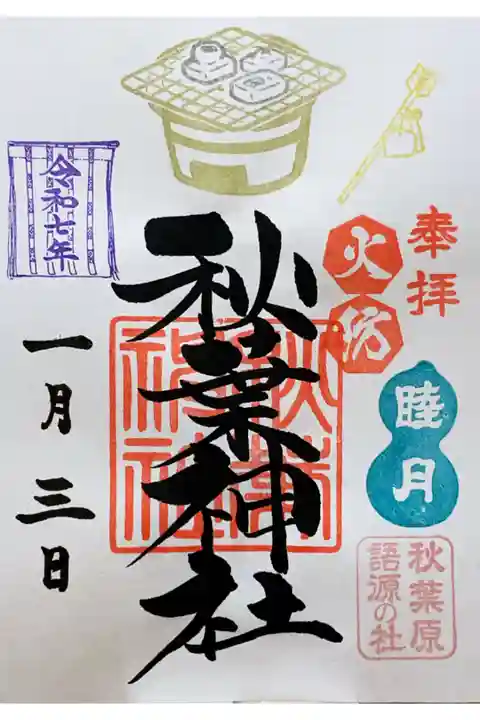 奉拝
火防
睦月
秋葉原
語源の社
秋葉神社
秋葉神社
令和七年
一月三日